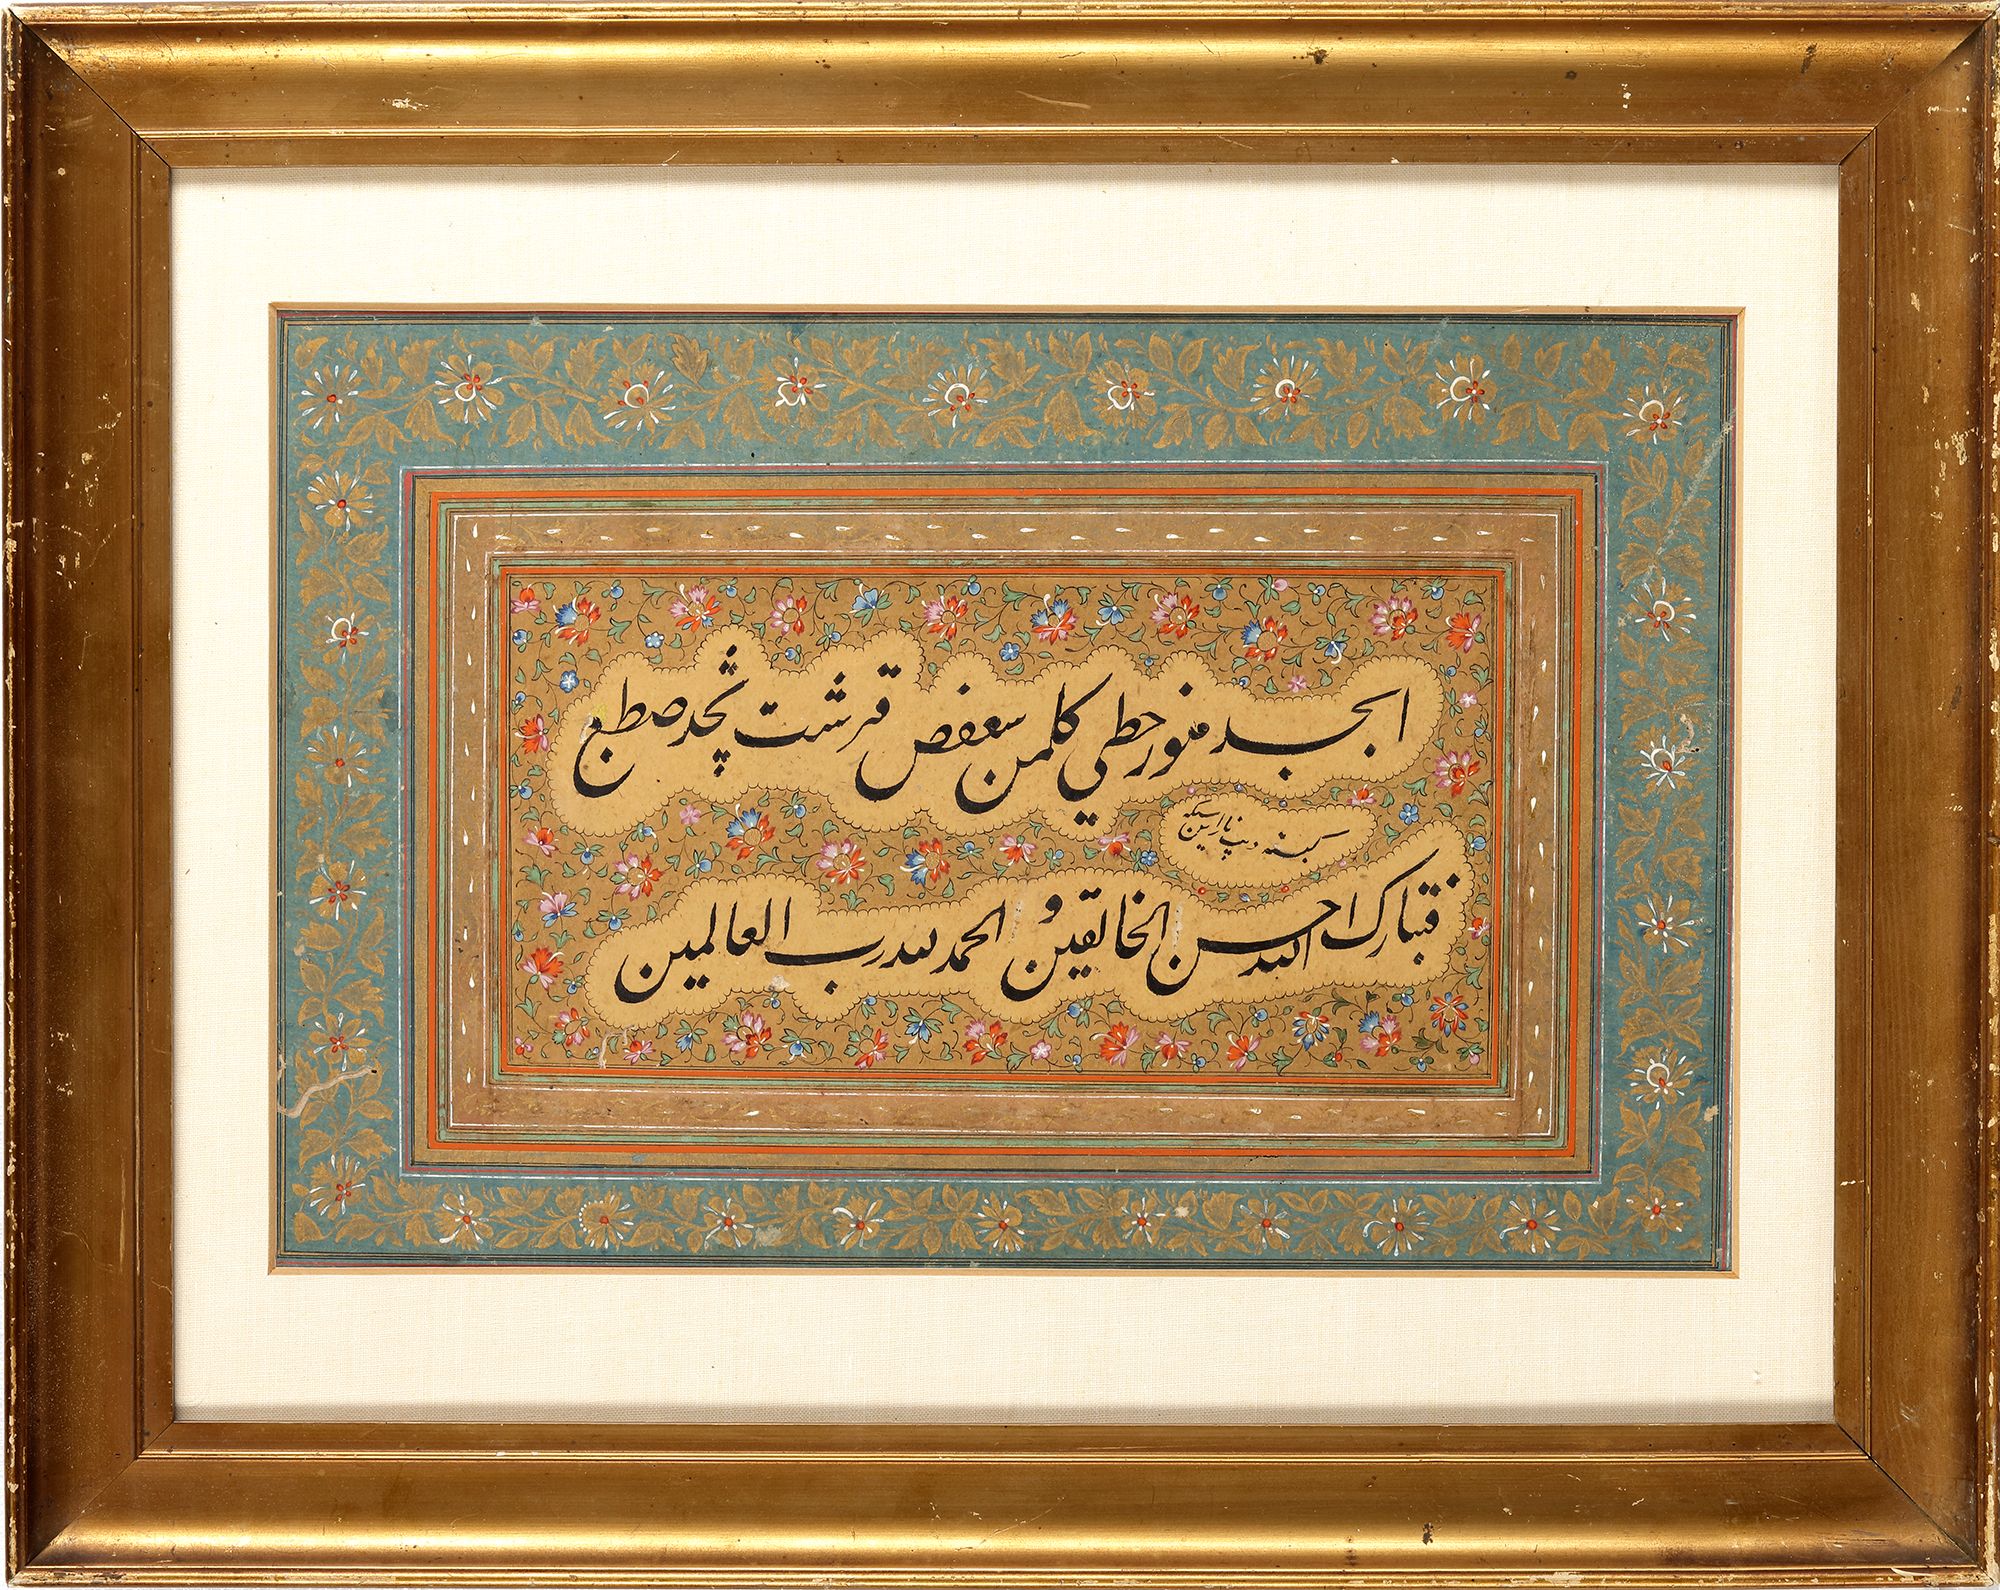 ابجد هوز حطي کلمن سعفص قرشت ثخذ ضظغ
کمینه دیپ ناراین
فتبارک الله احسن الخالقین و الحمد لله رب العالمین